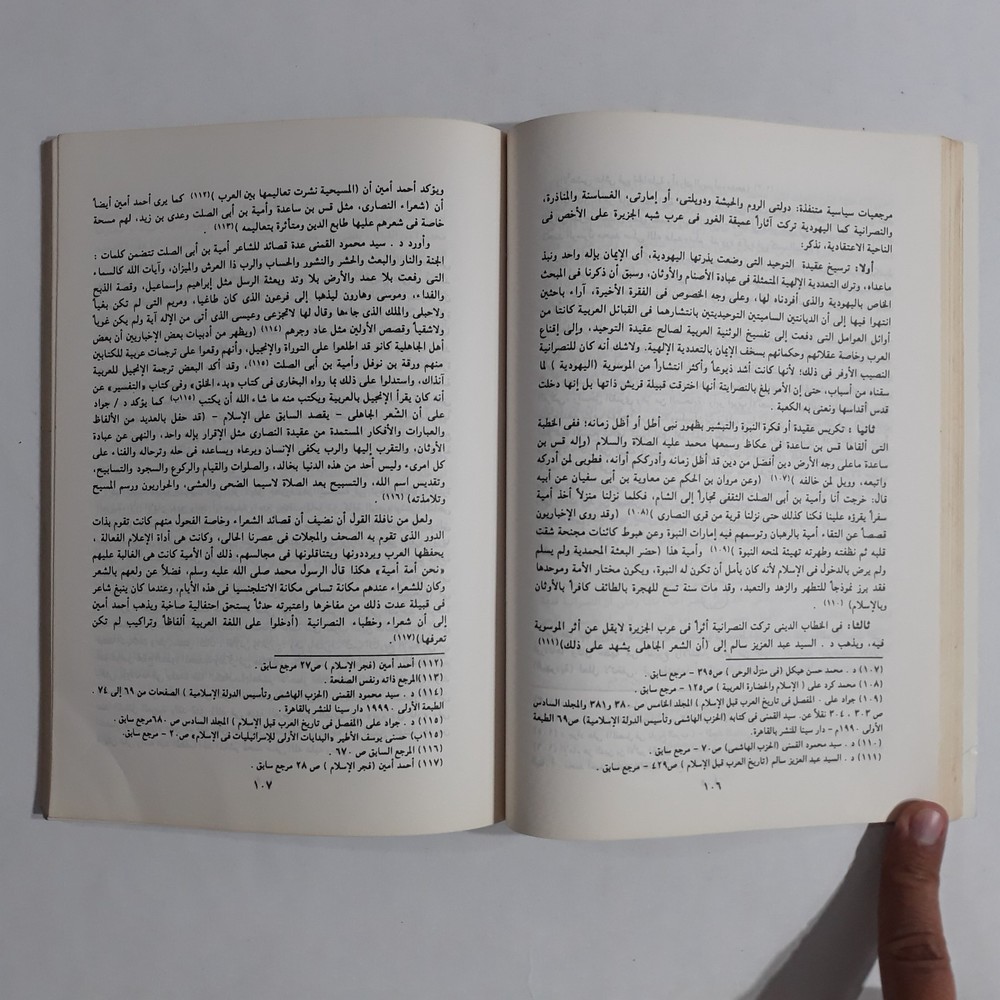 مرجعيات سياسية متنفلة: دولتى الروم والحبشة ودويلتى، أو إمارتى، الغساسنة والمناذرة،
والنصرانية كما اليهودية تركت آثاراً عميقة الغور فى عرب شبه الجزيرة على الأخص فى
الناحية الاعتقادية، نذكر:
أولا: ترسيخ عقيدة التوحيد التى وضعت بذرتها اليهودية، أى الإيمان بإله واحد ونبذ
ماعداه، وترك التعددية الإلهية المتمثلة فى عبادة الأصنام والأوثان، وسبق أن ذكرنا فى المبحث
الخاص باليهودية والذى أفردناه لها، وعلى وجه الخصوص فى الفقرة الأخيرة، آراء باحثين
انتهوا فيها إلى أن الديانتين الساميتين التوحيديتين بانتشارهما فى القبائل العربية كانتا من
أوائل العوامل التى دفعت إلى تفسيخ الوثنية العربية لصالح عقيدة التوحيد، وإلى إقناع
العرب وخاصة عقلائهم وحكمائهم بسخف الإيمان بالتعددية الإلهية. ولاشك أنه كان للنصرانية
النصيب الأوفر فى ذلك؛ لأنها كانت أشد ذيوعاً وأكثر انتشاراً من الموسوية (اليهودية ) لما
سقناه من أسباب، حتى إن الأمر بلغ بالنصراينة أنها اخترقت قبيلة قريش ذاتها بل إنها دخلت
قدس أقداسها ونعنى به الكعبة .
ثانيا : تكريس عقيدة أو فكرة النبوة والتبشير بظهور نبى أطل أو أظل زمانه؛ ففى الخطبة
التى ألقاها قس بن ساعدة فى عكاظ وسمعها محمد عليه الصلاة والسلام (وإله قس بن
ساعدة ماعلى وجه الأرض دين أفضل من دين قد أظل زمانه وأدرككم أوانه، فطوبى لمن أدركه
واتبعه، وويل لمن خالفه )(١٠٧) (وعن مروان بن الحكم عن معاوية بن أبى سفيان عن أبيه
قال: خرجت أنا وأمية بن أبى الصلت الثقفى تجاراً إلى الشام، فكلما نزلنا منزلاً أخذ أمية
سفراً يقرؤه علينا فكنا كذلك حتى نزلنا قرية من قرى النصارى )(١٠٨) (وقد روى الإخباريون
قصصاً عن التقاء أمية بالرهبان وتوسمهم فيه إمارات النبوة وعن هبوط كائنات مجنحة شقت
قلبه ثم نظفته وطهرته تهيئة لمنحه النبوة )(١٠٩) وأمية هذا (حضر البعثة المحمدية ولم يسلم
ولم يرض بالدخول فى الإسلام لأنه كان يأمل أن تكون له النبوة، ويكون مختار الأمة وموحدها
فقد برز نموذجاً للتطهر والزهد والتعبد، وقد مات سنة تسع للهجرة بالطائف كافراً بالأوثان
وبالإسلام) (١١٠) .
ثالثا: فى الخطاب الدينى تركت النصرانية أثراً فى عرب الجزيرة لايقل عن أثر الموسوية
فيه، ويذهب د . السيد عبد العزيز سالم إلى (أن الشعر الجاهلى يشهد على ذلك)(١١١)
(١٠٧) د . محمد حسن هيكل (فى منزل الوحى ) ص٣٩٥ - مرجع سابق .
(١٠٨) محمد كرد على ( الإسلام والحضارة العربية ) ص١٢٥ - مرجع سابق .
(١٠٩) جواد على . المفصل فى تاريخ العرب قبل الإسلام ) المجلد الخامس ص ٣٨٠ و٣٨١ والمجلد السادس
ص ٣٠٣ ، ٣٠٤ نقلاً عن. سيد القمنى فى كتابه (الحزب الهاشمى وتأسيس الدولة الإسلامية) ص٦٩ الطبعة
الأولى ١٩٩٠م - دار سينا للنشر بالقاهرة.
(١١٠) د . سيد محمود القمنى (الحزب الهاشمى) ص٧٠ - مرجع سابق .
(١١١) د . السيد عبد العزيز سالم (تاريخ العرب قبل الإسلام ) ص٤٢٩ - مرجع سابق .
١٠٦
ويؤكد أحمد أمين أن (المسيحية نشرت تعاليمها بين العرب )(١١٢) كما يرى أحمد أمين أيضاً
أن (شعراء النصارى، مثل قس بن ساعدة وأمية بن أبى الصلت وعدى بن زيد، لهم مسحة
خاصة فى شعرهم عليها طابع الدين ومتأثرة بتعاليمه )(١١٣) .
وأورد د . سيد محمود القمنى عدة قصائد للشاعر أمية بن أبى الصلت تتضمن كلمات :
الجنة والنار والبعث والحشر والنشور والحساب والرب ذا العرش والميزان، وآيات الله كالسماء
التى رفعت بلا عمد والأرض بلا وتد وبعثة الرسل مثل إبراهيم وإسماعيل، وقصة الذبح
والفداء، وموسى وهارون ليذهبا إلى فرعون الذى كان طاغيا، ومريم التى لم تكن بغياً
ولاحبلى والملك الذى جاءها وقال لها لاتجزعى وعيسى الذى أتى من الإله آية ولم يكن غوياً
ولاشقياً وقصص الأولين مثل عاد وجرهم (١١٤) (ويظهر من أدبيات بعض الإخباريين أن بعض
أهل الجاهلية كانو قد اطلعوا على التوراة والإنجيل، وأنهم وقعوا على ترجمات عربية للكتابين
منهم ورقة بن نوفل وأمية بن أبى الصلت (١١٥)، وقد أكد البعض ترجمة الإنجيل للعربية
آنذاك، واستدلوا على ذلك بما رواه البخارى فى كتاب «بدء الخلق» وفى كتاب «التفسير» عن
أنه كان يقرأ الإنجيل بالعربية ويكتب منه ما شاء الله أن يكتب (١١٥ب) كما يؤكد د / جواد
على أن الشعر الجاهلى - يقصد السابق على الإسلام - (قد حفل بالعديد من الألفاظ
والعبارات والأفكار المستمدة من عقيدة النصارى مثل الإقرار بإله واحد، والنهى عن عبادة
الأوثان، والتقرب إليها والرب يكفى الإنسان ويرعاه ويساعده فى حله وترحاله والفناء على
كل امرىء وليس أحد من هذه الدنيا بخالد، والصلوات والقيام والركوع والسجود والتسابيح،
وتقديس اسم الله، والتسبيح بعد الصلاة لاسيما الضحى والعشى، والحواريون ورسم المسيح
وتلامذته) (١١٦) .
ولعل من نافلة القول أن نضيف أن قصائد الشعراء وخاصة الفحول منهم كانت تقوم بذات
الدور الذى تقوم به الصحف والمجلات فى عصرنا الحالى، وكانت هى أداة الإعلام الفعالة ،
يحفظها العرب ويرددونها ويتناقلونها فى مجالسهم، ذلك أن الأمية كانت هى الغالبة عليهم
«نحن أمة أمية» هكذا قال الرسول محمد صلى الله عليه وسلم، فضلاً عن ولعهم بالشعر
وكان للشعراء عندهم مكانة تسامى مكانة الانتلجنسيا فى هذه الأيام، وعندما كان ينبغ شاعر
فى قبيلة عدت ذلك من مفاخرها واعتبرته حدثاً يستحق احتفالية صاخبة ويذهب أحمد أمين
إلى أن شعراء وخطباء النصرانية (أدخلوا على اللغة العربية ألفاظاً وتراكيب لم تكن
تعرفها)(١١٧).
(١١٢) أحمد أمين (فجر الإسلام ) ص٢٧ مرجع سابق .
(١١٣)المرجع ذاته ونفس الصفحة .
(١١٤) د . سيد محمود القمنى (الحزب الهاشمى وتأسيس الدولة الإسلامية ) الصفحات من ٦٩ إلى ٧٤ .
الطبعة الأولى . ١٩٩٩٠ دار سينا للنشر بالقاهرة .
(١١٥) د . جواد على (المفصل فى تاريخ العرب قبل الإسلام ) المجلد السادس ص ٦٨٠مرجع سابق .
(١١٥ب) حسنى يوسف الأطير «البدايات الأولى للإسرائيليات فى الإسلام» ص٢٠ - مرجع سابق.
(١١٦) المرجع السابق ص ٦٧٠ .
(١١٧) أحمد أمين (فجر الإسلام ) ص ٢٨ مرجع سابق .
١٠٧